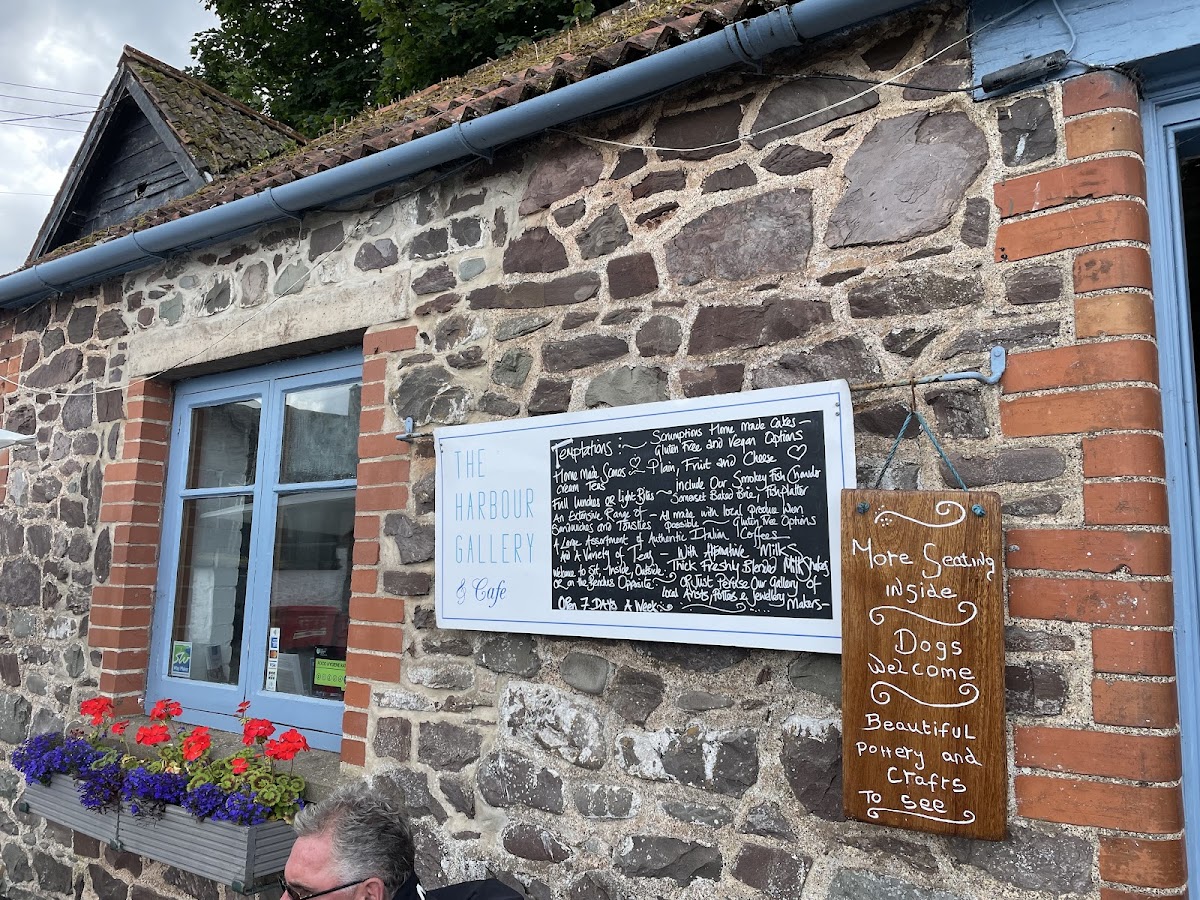 THE
HARBOUR
GALLERY
& Cafe
Temptations :~ Scrumptious Home made Cakes ~
Gluten Free and Vegan Options
Home Made Scones ~ Plain, Fruit and Cheese
Cream Teas
Full Lunches or Light Bites ~ Include Our Smokey Fish Chowder
Somerset Baked Brie, Fish platter
An Extensive Range of ~ All made with local produce when
Sandwiches and Toasties possible ~ Gluten Free Options
A Large Assortment of Authentic Italian Coffees
And A Variety of Teas ~ With Alternative Milks
Welcome to Sit, Inside, Outside Thick Freshly Blended Milk Shakes
or on the Benches Opposite. ~ OR Just Peruse Our Gallery of
Local Artists, Potters & Jewellery Makers ~
Open 7 DAYS A Week
More Seating
inside
Dogs
Welcome
Beautiful
Pottery and
Crafts
To see